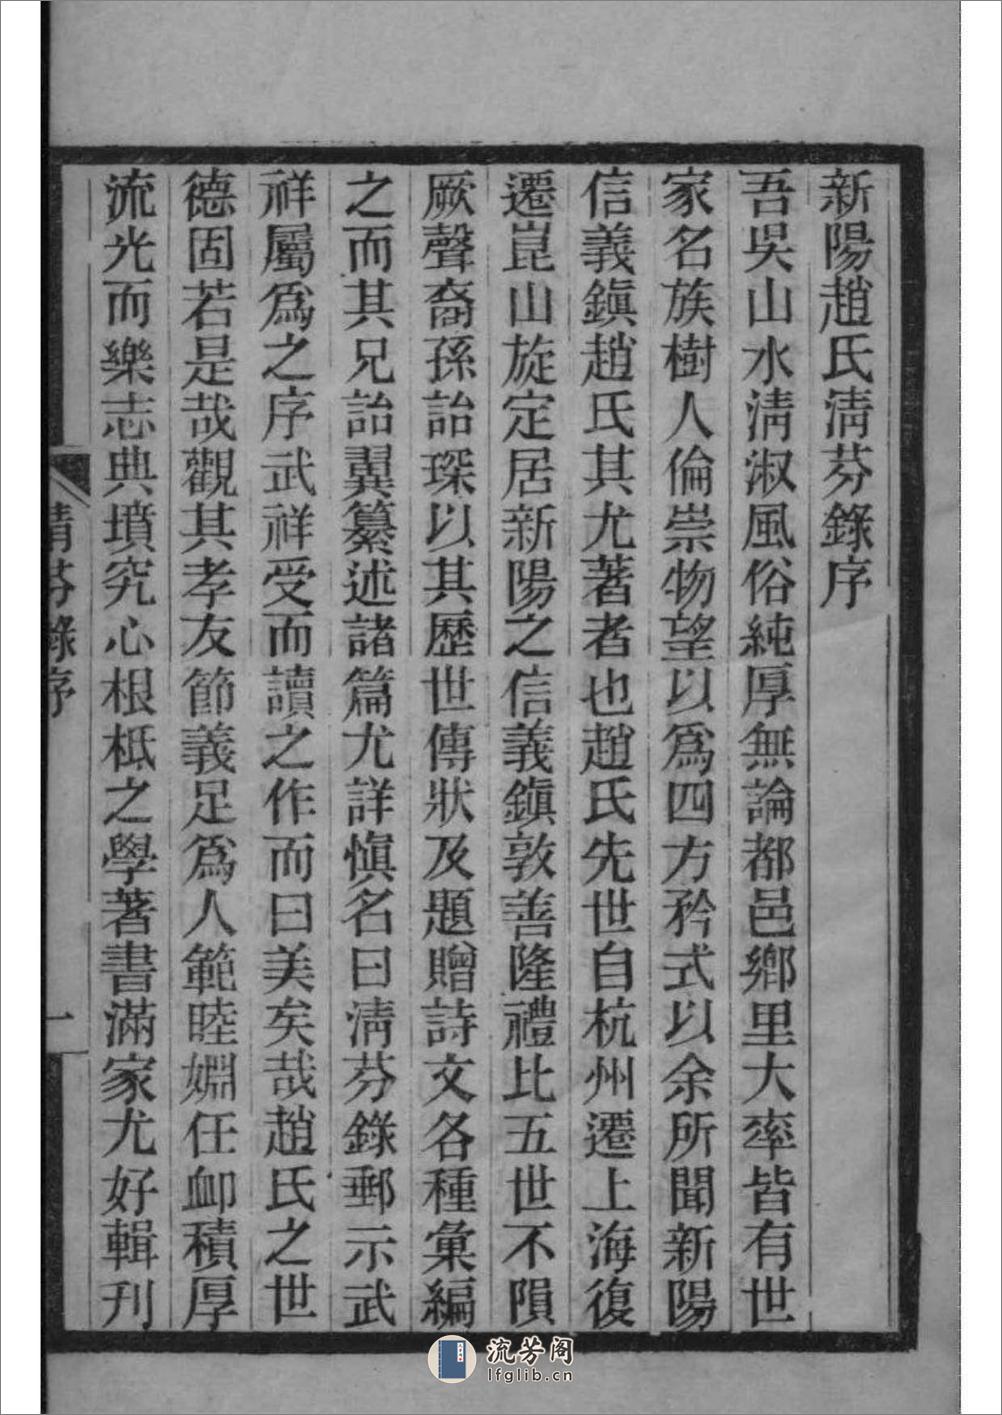 新陽趙氏淸芬錄序
吾吳山水淸淑風俗純厚無論都邑鄉里大率皆有世
家名族樹人倫崇物望以爲四方矜式以余所聞新陽
信義鎭趙氏其尤著者也趙氏先世自杭州遷上海復
遷崑山旋定居新陽之信義鎭敦善隆禮比五世不隕
厥聲裔孫詒琛以其歷世傳狀及題贈詩文各種彙編
之而其兄詒翼纂述諸篇尤詳愼名曰淸芬錄郵示武
祥屬爲之序武祥受而讀之作而曰美矣哉趙氏之世
德固若是哉觀其孝友節義足爲人範睦婣任卹積厚
流光而樂志典墳究心根柢之學著書滿家尤好輯刊
淸芬錄序
一
流芳阁
lfglib.cn